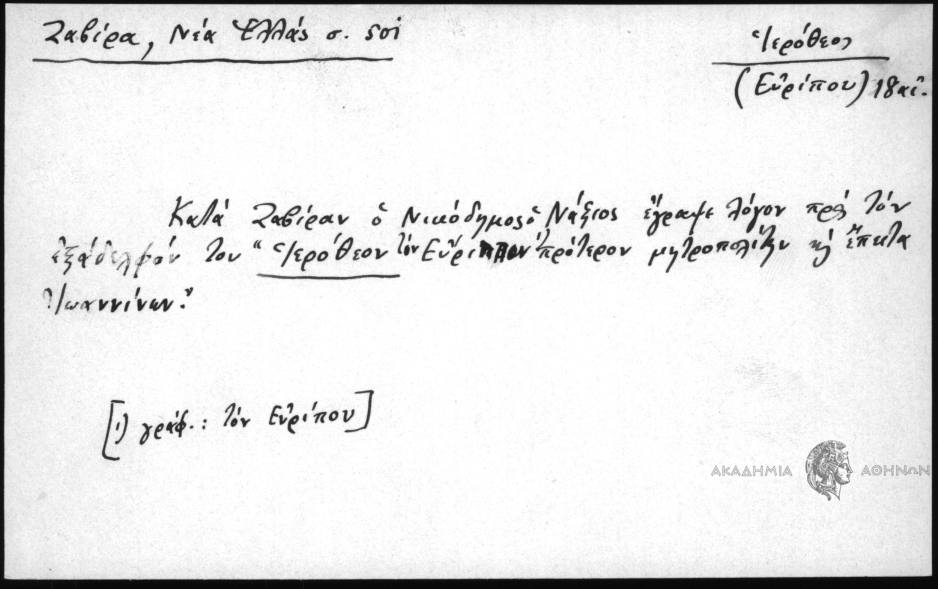 Ζαβίρα, Νέα Ἑλλάς σ. 501
Ἱερόθεος
(Εὐρίπου) 18 αἰ.
Κατά Ζαβίραν ὁ Νικόδημος ὁ Νάξιος ἔγραψε λόγον πρός τόν
ἐξάδελφόν του "Ἱερόθεον τόν Εὔριππον¹⁾ πρότερον μητροπολίτην κ ἔπειτα
Ἰωαννίνων."
[1) γράφ.: τόν Εὐρίπου]
ΑΚΑΔΗΜΙΑ ΑΘΗΝΩΝ